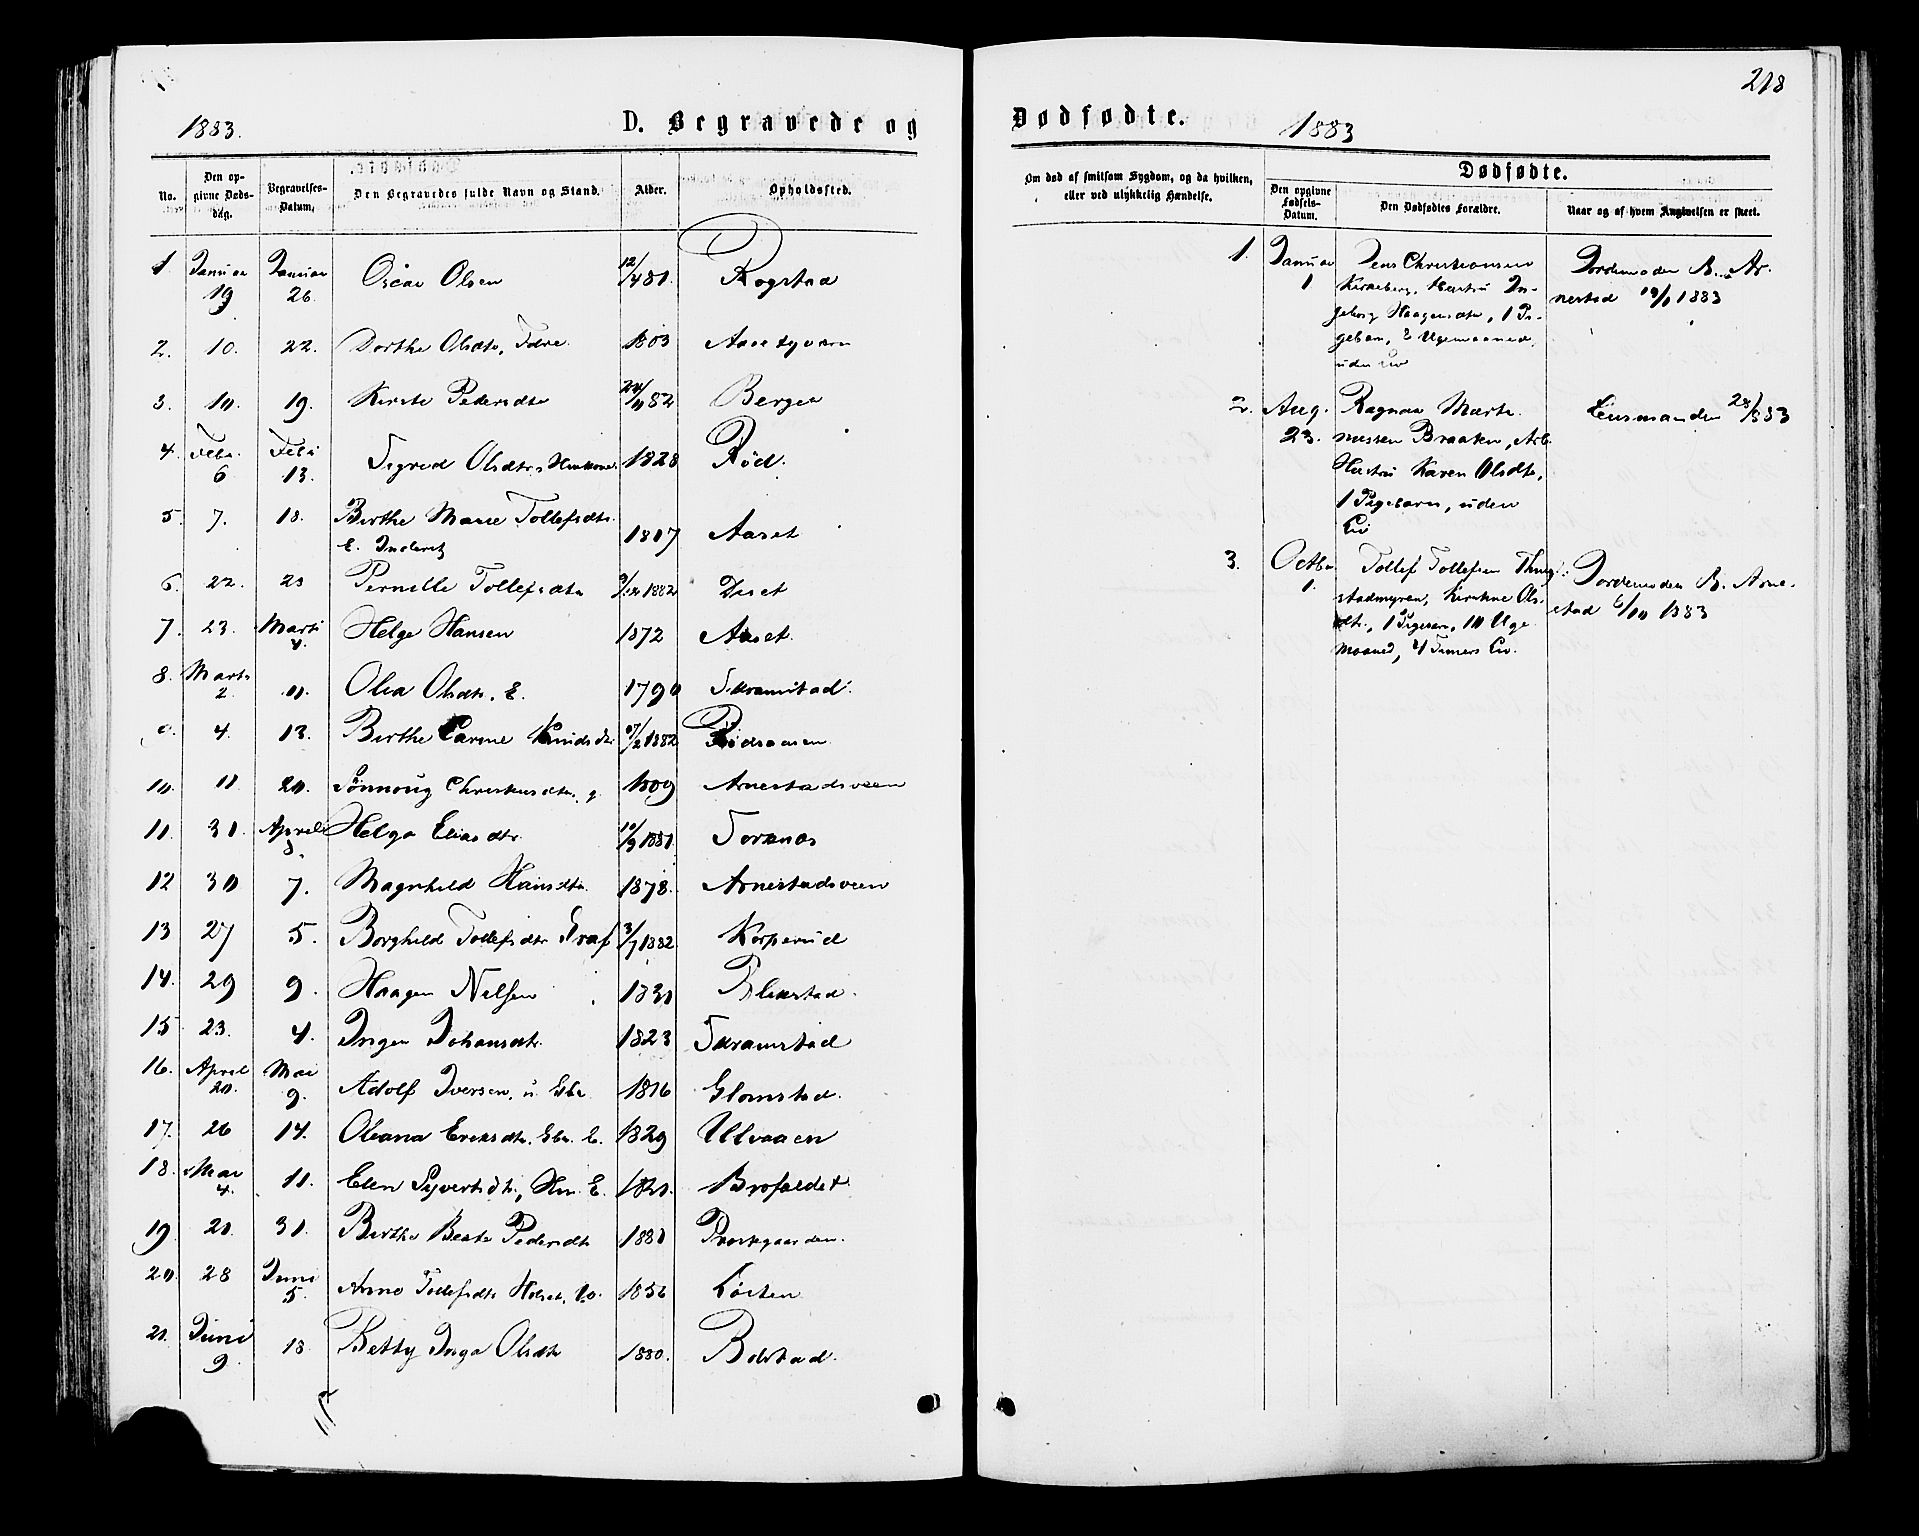 218
1883.
D. Begravede og
Dødfødte.
1883
No.
Den opgivne Dødsdag.
Begravelses-Datum.
Den Begravedes fulde Navn og Stand.
Alder.
Opholdssted.
1. Januar 19 Januar 26. Oscar Olsen 12/4 81. Rogstad
2. 10. 22. Dorthe Olsdtr. 1803
3. 10. 19. Kirste Pedersdtr 82 Berger
4. Febr. 6 Febr 13. Sigrid Olsdtr. 1828 Rød.
5. 7. 18. Berthe Marie Tollefsdtr.
E. Inderst 1817 Aaset
6. 22. 23 Pernille Tollefsdtr 1882 Diset
7. 23. Marts 4. Helge Hansen 1872 Aaset.
8. Marts 2. 11. Olea Olsdtr. E. 1790 Skramstad.
9. 4. 13. Berthe Karine Knudsdtr 1882 Rødsaasen
10. 11 20. Sønnoug Christensdtr. 1809 Arnestadsveen
11. 31. April 8. Helga Eliasdtr. 10/9 1881. Torknes
12 30 7. Magnhild Hansdtr. 1878. Arnestadsveen
13 27 5. Borghild Tollefsdtr 3/7 1882 Korperud
14. 29 9. Haagen Nilsen 1831 Blikstad.
15 23. 4. Inger Johansdtr. 1823 Skramstad
16. April 20. Mai 9. Adolf Iversen, 1816 Glomstad.
17. 26 14. Oleana Eriksdtr. E. 1829 Ulvaaen
18. Mai 4. 11. Elen Syversdtr., E. Brofaldet
19 21. 31. Berthe Beate Pedersdtr 1881 Præstegaarden.
20. 28 Juni 5. Tollefsdtr 1856 Løsten
21. Juni 9. 18. Betty Inga Olsdtr 1880. Bolstad.
Om død af smitsom Sygdom, og da hvilken, eller ved ulykkelig Hændelse.
Dødfødte.
Den opgivne Fødsels-Datum.
Den Dødfødtes Forældre.
Naar og af hvem Angivelsen er skeet.
1. Januar 1 Jens Christiansen
Kirkeberg, Hustru In-
geborg Haagensdtr, 1 Pi-
gebarn, 8 Ugemaaned,
uden Liv
Jordemoder B. Ar-
nestad 19/1 1883
2. Aug. 23. Ragnar Marti-
nussen Braaten, Arb.
Hustru Karen Olsdtr,
1 Pigebarn, uden
Liv
Lensmanden 28/8 83
3. Octbr 1. Tollef Tollefsen
stadmyren, Kirstine Ols-
dtr., 1 Pigebarn, 10 Uge
maaned, 4 Timers Liv.
Jordemoder B. Arne-
stad 6/10 1883